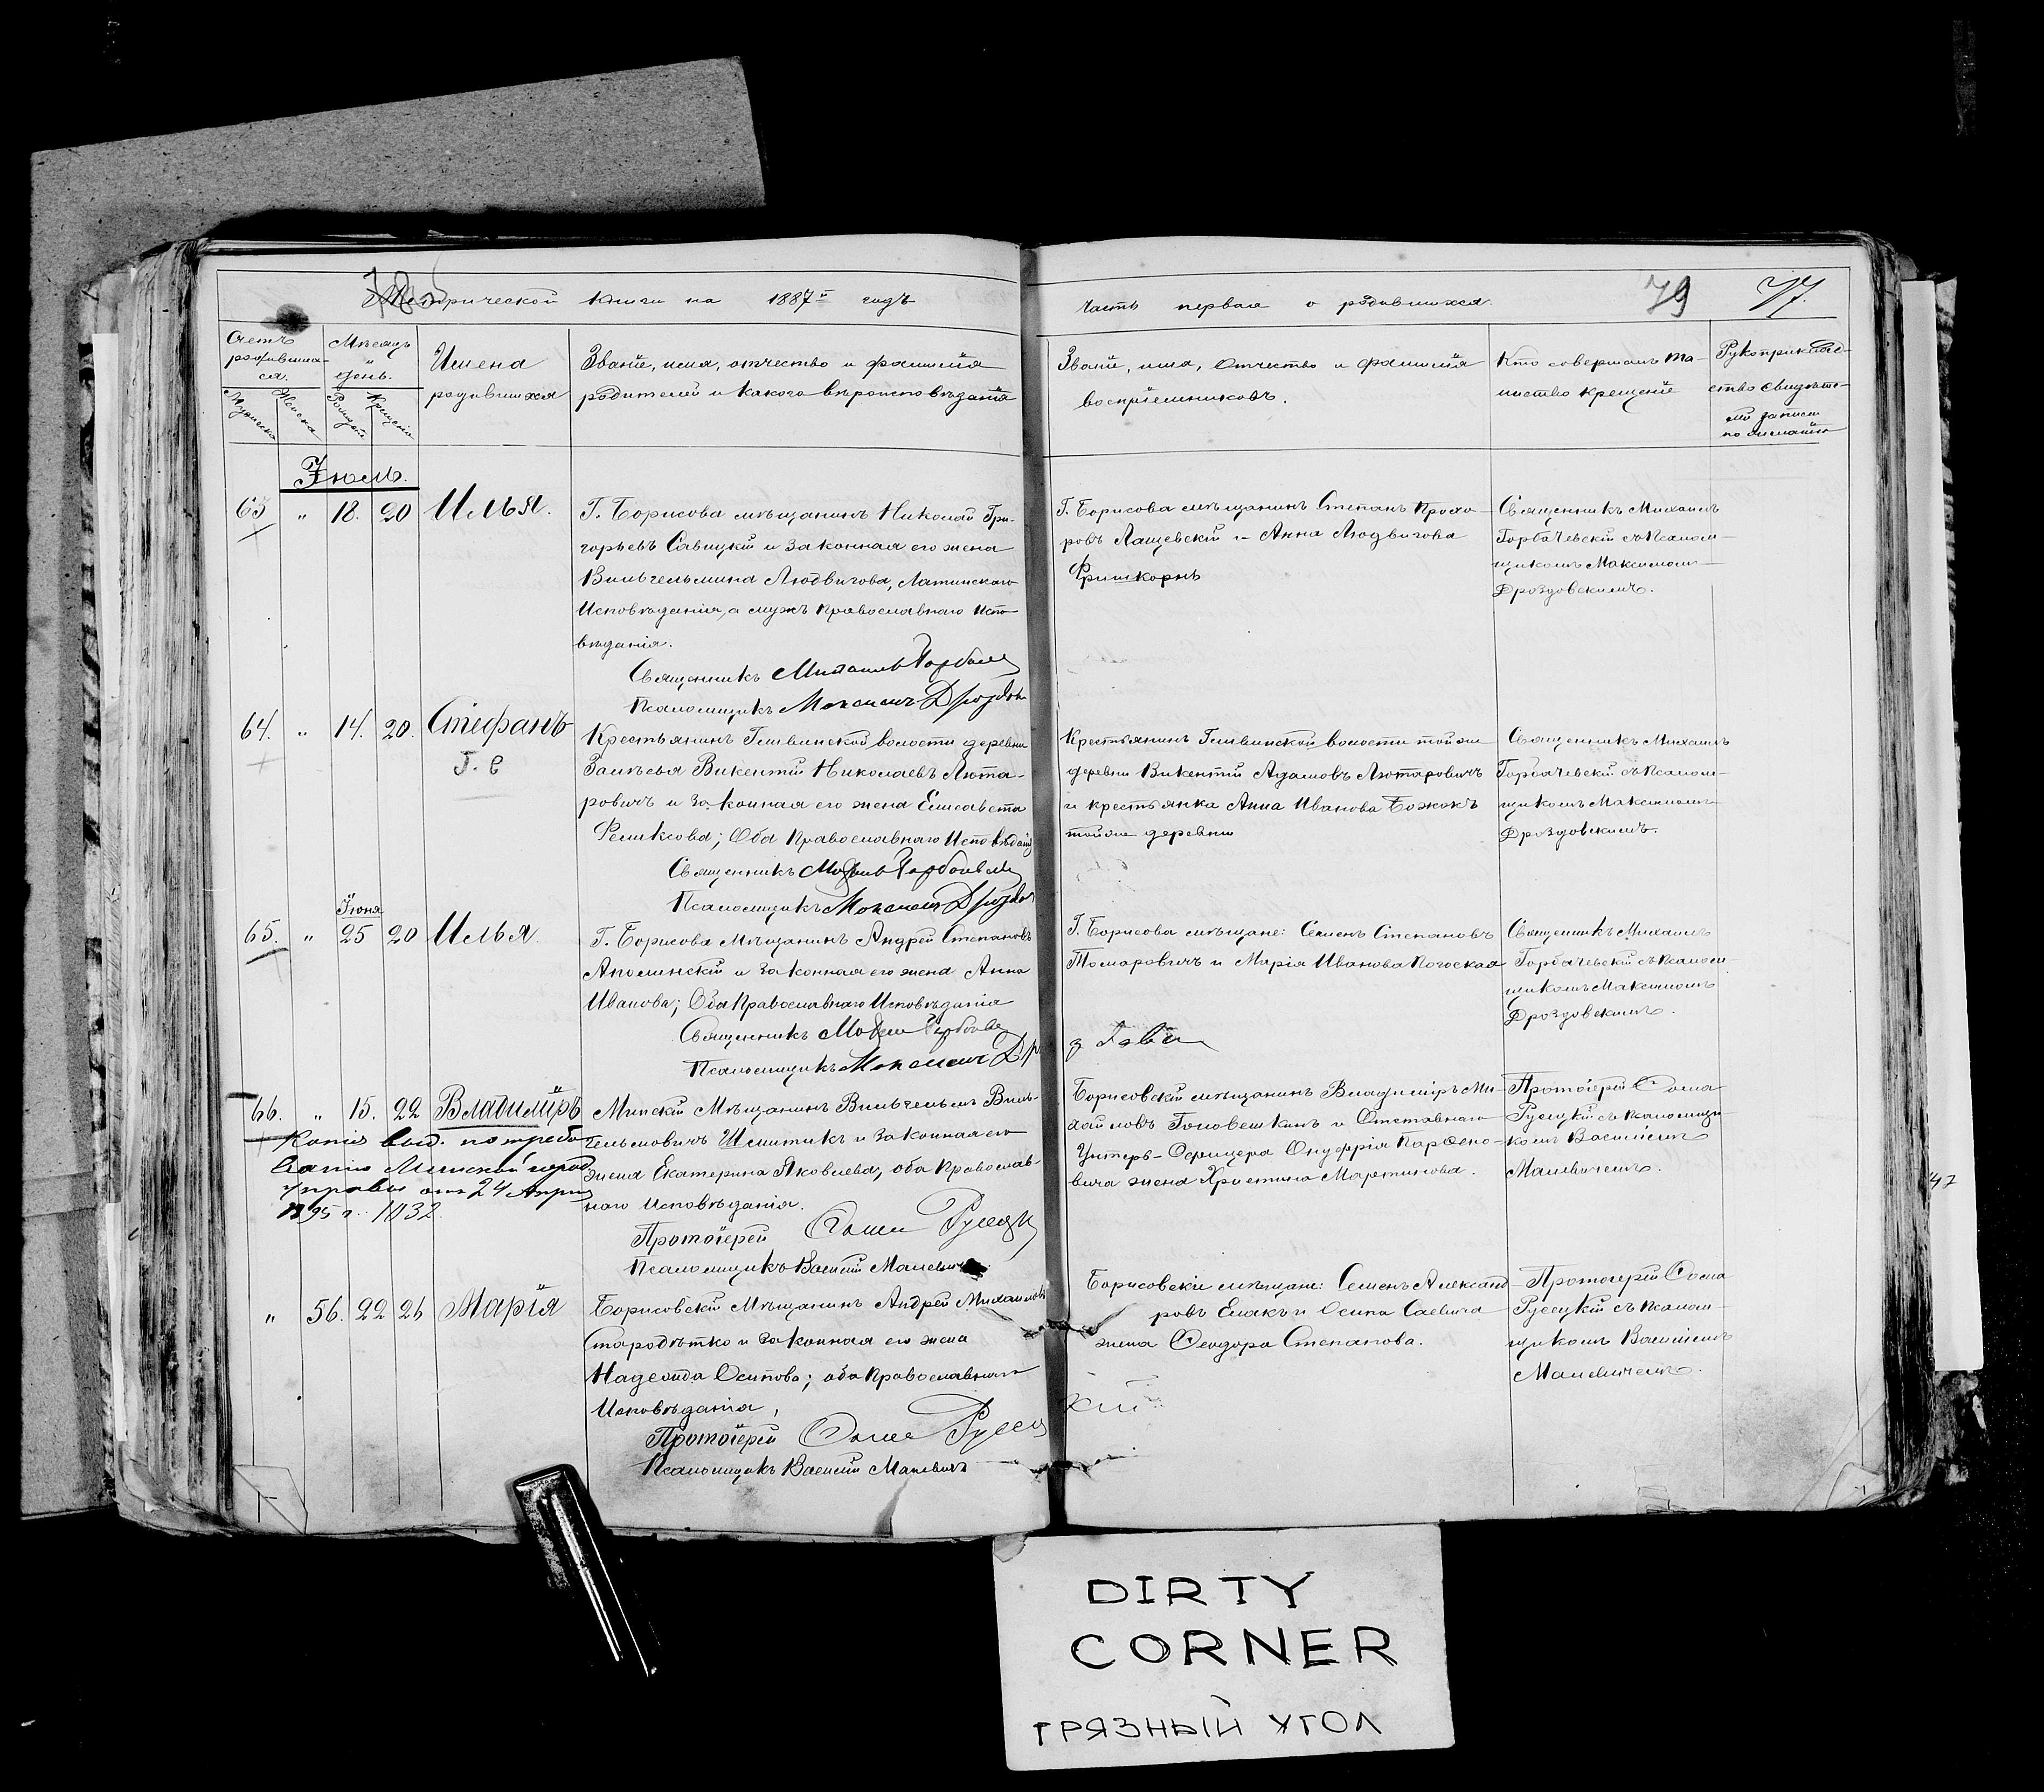 Метрической книги на 1887й годъ
Часть первая о родившихся.
79
77.
Счетъ родившихся.
Мѣсяцъ и день.
Имена
родившихся
Званіе, имя, отчество и фамилія
родителей и какого вѣроисповѣданія
Званіе, имя, отчество и фамилія
воспріемниковъ.
Кто совершалъ та-
инство крещенія
Рукоприклад-
ство свидѣте-
лей записи
по желанію
Іюль.
63 " 18. 20 Илья.
Г. Борисова мѣщанинъ Николай Гри-
горьевъ Савицкій и законная его жена
Вильгельмина Людвигова, Латинскаго
Исповѣданія, а мужъ Православнаго Испо-
вѣданія.
Священникъ Михаилъ
Псаломщикъ Максимъ
Г. Борисова мѣщанинъ Степанъ Прохо-
ровъ Лащевскій и Анна Людвигова
Фришкорнъ
Священникъ Михаилъ
Горбачевскій съ Псалом-
щикомъ Максимомъ
Дроздовскимъ.
64. " 14. 20. Стефанъ
Крестьянинъ Гливинской волости деревни
Залѣсья Викентій Николаевъ Люта-
ровичъ и законная его жена Елисавета
Феликсова; Оба Православнаго Исповѣданія
Священникъ
Псаломщикъ Максимъ
Крестьянинъ Гливинской волости той же
деревни Викентій Адамовъ Лютаровичъ
и крестьянка Анна Иванова Божокъ
той же деревни
Священникъ Михаилъ
Горбачевскій съ Псалом-
щикомъ Максимомъ
Дроздовскимъ.
Іюня
65. " 25 20 Илья.
Г. Борисова Мѣщанинъ Андрей Степановъ
Аполинскій и законная его жена Анна
Иванова; Оба Православнаго Исповѣданія
Священникъ
Псаломщикъ Максимъ
Г. Борисова мѣщане: Семенъ Степановъ
Томаровичъ и Марія Иванова Погоская
Священникъ Михаилъ
Горбачевскій съ Псалом-
щикомъ Максимомъ
Дроздовскимъ.
66. " 15. 22 Владиміръ
Копія выд. по требо-
ванію Минской город.
управы отъ 24 Апрѣля
1895 г. 1032
Минскій Мѣщанинъ Вильгельмъ Виль-
гельмовичъ Шмитикъ и законная его
жена Екатерина Яковлева, оба Православ-
наго Исповѣданія.
Протоіерей
Псаломщикъ Василій Малевичъ
Борисовскій мѣщанинъ Владиміръ Ми-
хайловъ Головешкинъ и Отставнаго
Унтеръ-Офицера Онуфрія Парѳено-
вича жена Христина Мартинова.
Протоіерей Ѳома
Русецкій съ псаломщи-
комъ Василіемъ
Малевичемъ.
" 56. 22 26 Марія
Борисовскій Мѣщанинъ Андрей Михаиловъ
Стародѣтко и законная его жена
Надежда Осипова; оба Православнаго
Исповѣданія,
Протоіерей
Псаломщикъ Василій Малевичъ
Борисовскіе мѣщане: Семенъ Александ-
ровъ Ельякъ и Осипа Саевича
жена Ѳеодора Степанова.
Протоіерей Ѳома
Русецкій съ Псалом-
щикомъ Василіемъ
Малевичемъ.
47
DIRTY
CORNER
ГРЯЗНЫЙ УГОЛ